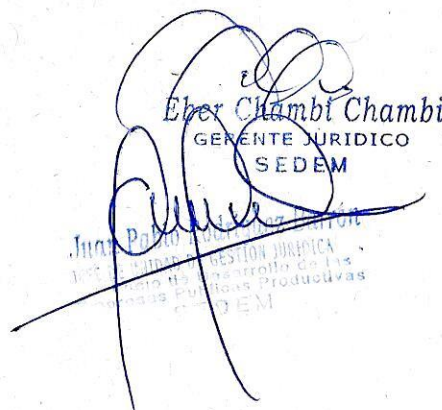 Eber Chambi Chambi
GERENTE JURIDICO
SEDEM
Juan Pablo Rodríguez
UNIDAD DE GESTION JURIDICA
Desarrollo de las
Públicas Productivas
SEDEM